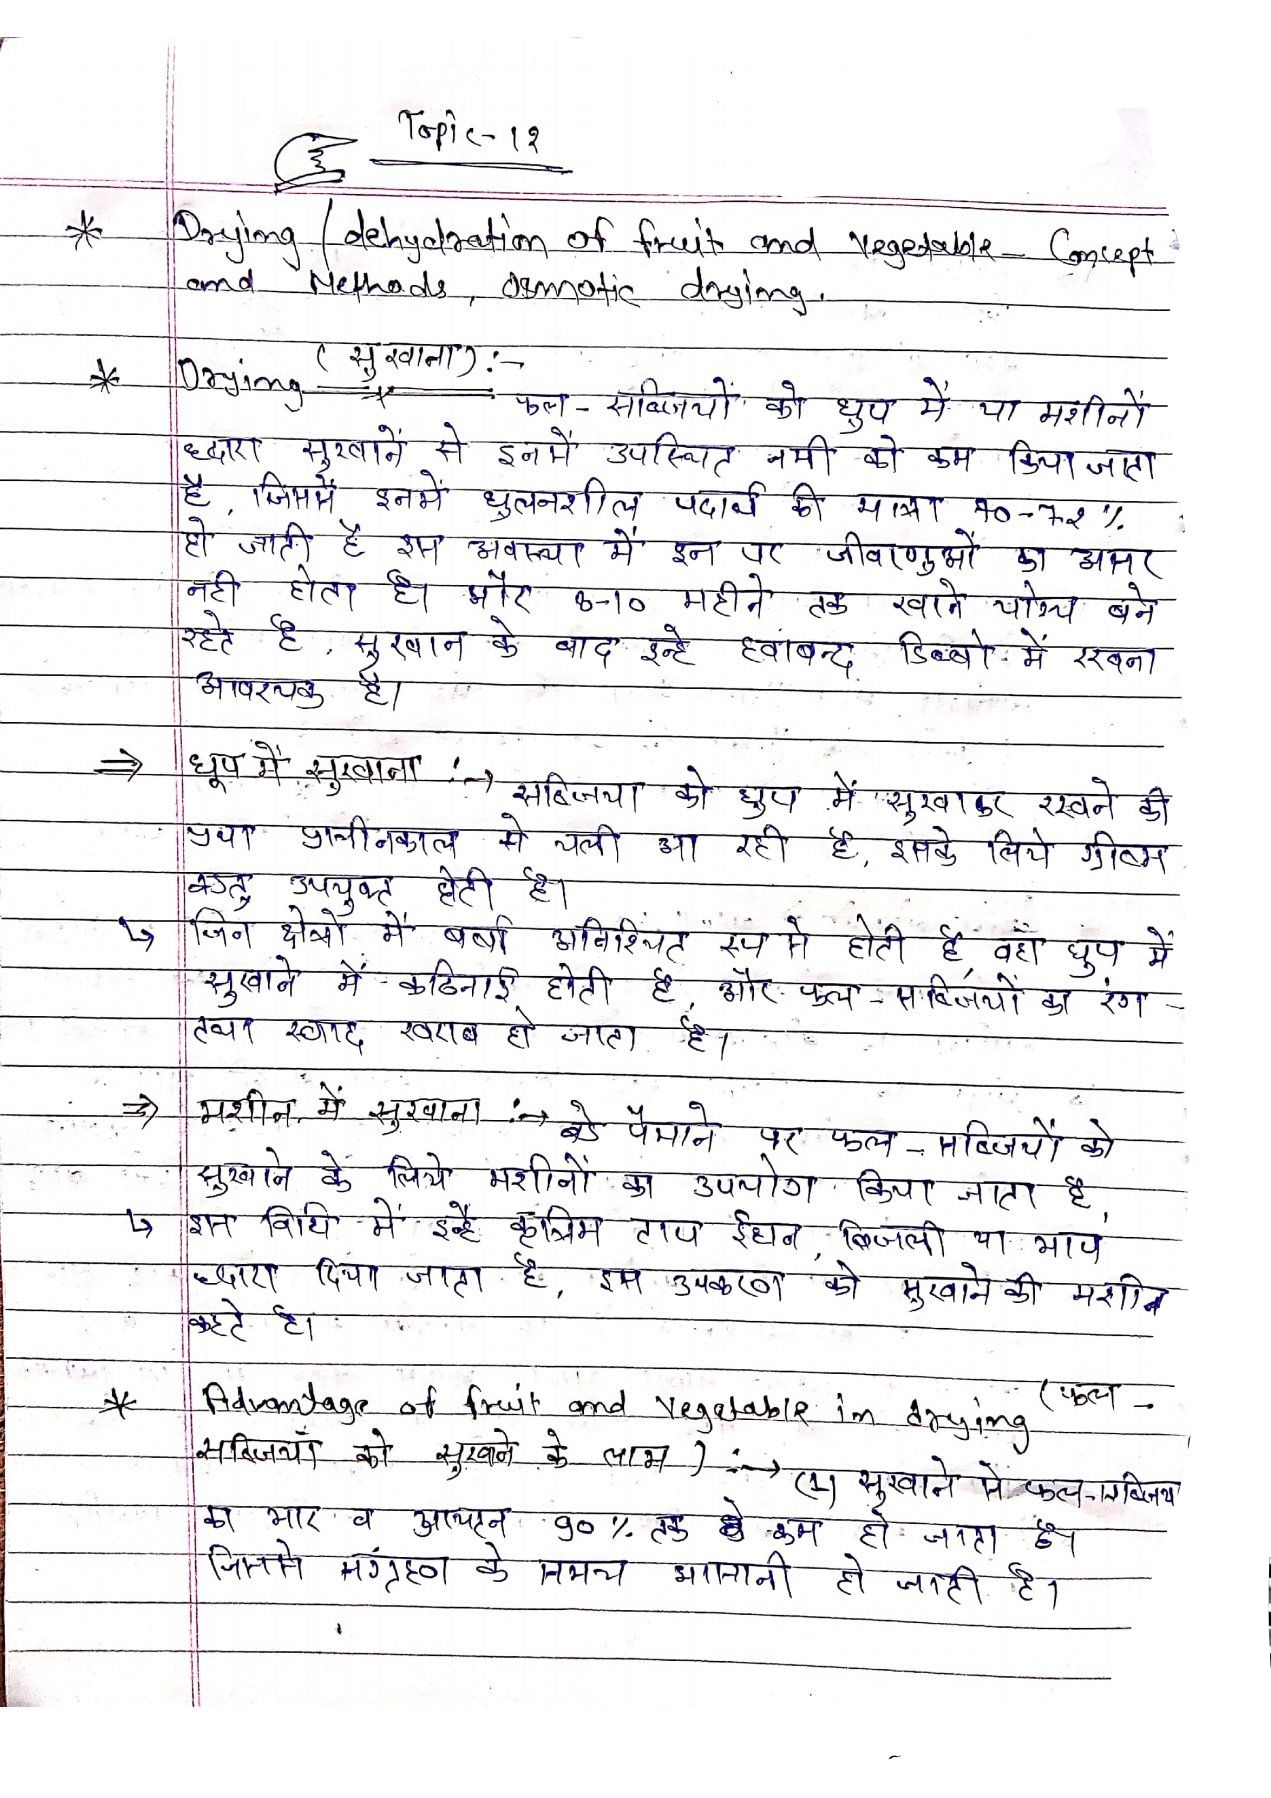 Topic-12
* Drying / dehydration of fruit and vegetable - Concept
and Methods, Osmotic drying.
* Drying (सुखाना) :-
फल - सब्जियों को धुप में या मशीनों
ध्दारा सुखानें से इनमें उपस्थित नमी को कम किया जाता
है, जिसमें इनमें धुलनशील पदार्थ की मात्रा 70-72%
हो जाती है इस अवस्था में इन पर जीवाणुओं का असर
नही होता है। और 8-10 महीने तक खाने योग्य बने
रहते है, सुखान के बाद इन्हे हवाबन्द डिब्बो में रखना
आवश्यक है।
⇒ धूप में सुखाना :→ सब्जिया को धुप में सुखाकर रखने की
प्रथा प्राचीनकाल से चली आ रही है, इसके लिये ग्रीष्म
ऋतु उपयुक्त होती है।
↳ जिन क्षेत्रो में बर्षा अनिश्चित रुप से होती है, वहाँ धुप में
सुखाने में कठिनाई होती है, और फल - सब्जियों का रंग -
तथा स्वाद खराब हो जाता है।
⇒ मशीन में सुखाना :→ बडे पैमाने पर फल - सब्जियों को
सुखाने के लिये मशीनों का उपयोग किया जाता है,
↳ इस विधि में इन्हे कृत्रिम ताप ईधन, बिजली या भाप
ध्दारा दिया जाता है, इस उपकरण को सुखाने की मशीन
कहते है।
* Advantage of fruit and vegetable in drying (फल -
सब्जियों को सुखाने के लाभ) :→ (1) सुखाने से फल-सब्जिय
का भार व आयतन 90% तक कम हो जाता है।
जिससे संग्रहण के समय आसानी हो जाती है।